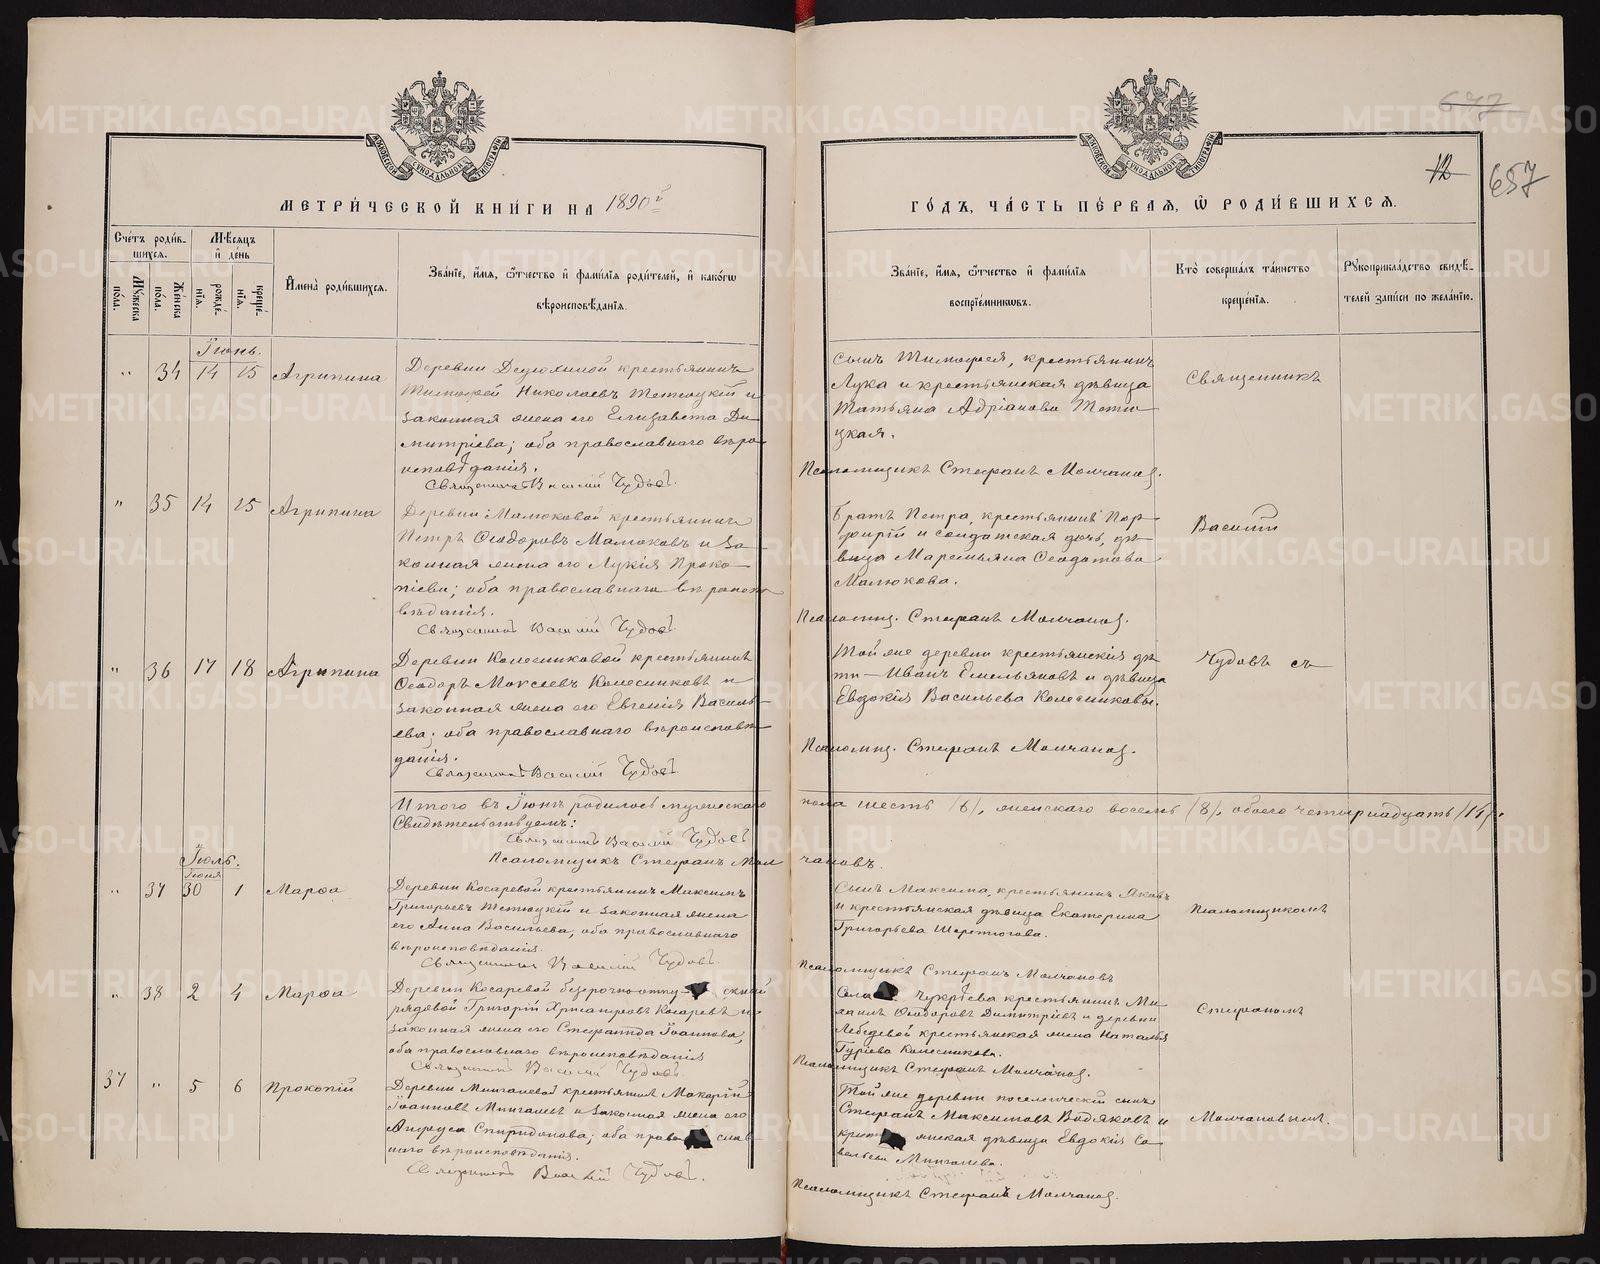 647
12
657
МЕТРИ́ЧЕСКОЙ КНИ́ГИ НА 1890й
ГО́ДЪ, ЧА́СТЬ ПЕ́РВАЯ, Ѡ҆ РОДИ́ВШИХСЯ.
Сче́тъ роди́в-
шихся.
Мѣ́сяцъ
и҆ де́нь
Мꙋ́жеска по́ла.
Же́нска по́ла.
рожде́нїя.
креще́нїя.
И҆мена̀ роди́вшихся.
Зва́нїе, и҆́мя, ѻ҆́тчество и҆ фами́лїя роди́телей, и҆ како́гѡ
вѣроисповѣ́данїя.
Зва́нїе, и҆́мя, ѻ҆́тчество и҆ фами́лїя
воспрїе́мникѡвъ.
Кто̀ соверша́лъ та́инство
креще́нїя.
Рꙋкоприкла́дство свидѣ́-
телей за́писи по жела́нїю.
Іюнь.
" 34 14 15 Агрипина
Деревни Дедюхиной крестьянинъ
Тимофей Николаевъ Тетюцкій и
законная жена его Елизавета Ди-
митріева; оба православнаго вѣро-
исповѣданія.
Священникъ Василій Чудовъ.
Сынъ Тимофея, крестьянинъ
Лука и крестьянская дѣвица
Татьяна Адріанова Тетю-
цкая.
Псаломщикъ Стефанъ Молчановъ.
Священникъ
" 35 14 15 Агрипина
Деревни Малюковой крестьянинъ
Петръ Ѳеодоровъ Малюковъ и за-
конная жена его Лукія Проко-
піева; оба православнаго вѣроиспо-
вѣданія.
Священникъ Василій Чудовъ
Братъ Петра, крестьянинъ Пор-
фирій и солдатская дочь, дѣ-
вица Маремьяна Ѳеодотова
Малюкова.
Псаломщ. Стефанъ Молчановъ.
Василій
" 36 17 18 Агрипина
Деревни Колесниковой крестьянинъ
Ѳеодоръ Моксеевъ Колесниковъ и
законная жена его Евгенія Василь-
ева; оба православнаго вѣроисповѣ-
данія.
Священникъ Василій Чудовъ
Той же деревни крестьянскія дѣ-
ти — Иванъ Емельяновъ и дѣвица
Евдокія Васильева Колесниковы.
Псаломщ. Стефанъ Молчановъ.
Чудовъ съ
Итого въ Іюнѣ родилось мужескаго
пола шесть /6/, женскаго восемь /8/, обоего четырнадцать /14/.
Свидѣтельствуемъ:
Священникъ Василій Чудовъ
Псаломщикъ Стефанъ Мол
чановъ.
Іюль.
Іюня
" 37 30 1 Марѳа
Деревни Косаревой крестьянинъ Максимъ
Григорьевъ Тетюцкій и законная жена
его Анна Васильева; оба православнаго
вѣроисповѣданія.
Священникъ Василій Чудовъ.
Сынъ Максима, крестьянинъ Яковъ
и крестьянская дѣвица Екатерина
Григорьева Шерстюгова.
Псаломщикъ Стефанъ Молчановъ
Псаломщикомъ
" 38 2 4 Марѳа
Деревни Косаревой безсрочно отпускный
рядовой Григорій Хрисанфовъ Косаревъ и
законная жена его Стефанида Іоаннова,
оба православнаго вѣроисповѣданія
Священникъ Василій Чудовъ.
Села Чукрѣева крестьянинъ Ми-
хаилъ Ѳеодоровъ Димитріевъ и деревни
Лебедевой крестьянская жена Наталья
Гуріева Колесникова.
Псаломщикъ Стефанъ Молчановъ.
Стефаномъ
37 " 5 6 Прокопій
Деревни Мингалевой крестьянинъ Макарій
Іоанновъ Мингалевъ и законная жена его
Анфуса Спиридонова; оба православ-
наго вѣроисповѣданія.
Священникъ Василій Чудовъ.
Той же деревни поселенческій сынъ
Стефанъ Максимовъ Водяковъ и
крестьянская дѣвица Евдокія Са-
вельева Мингалева.
Псаломщикъ Стефанъ Молчановъ.
Молчановымъ.